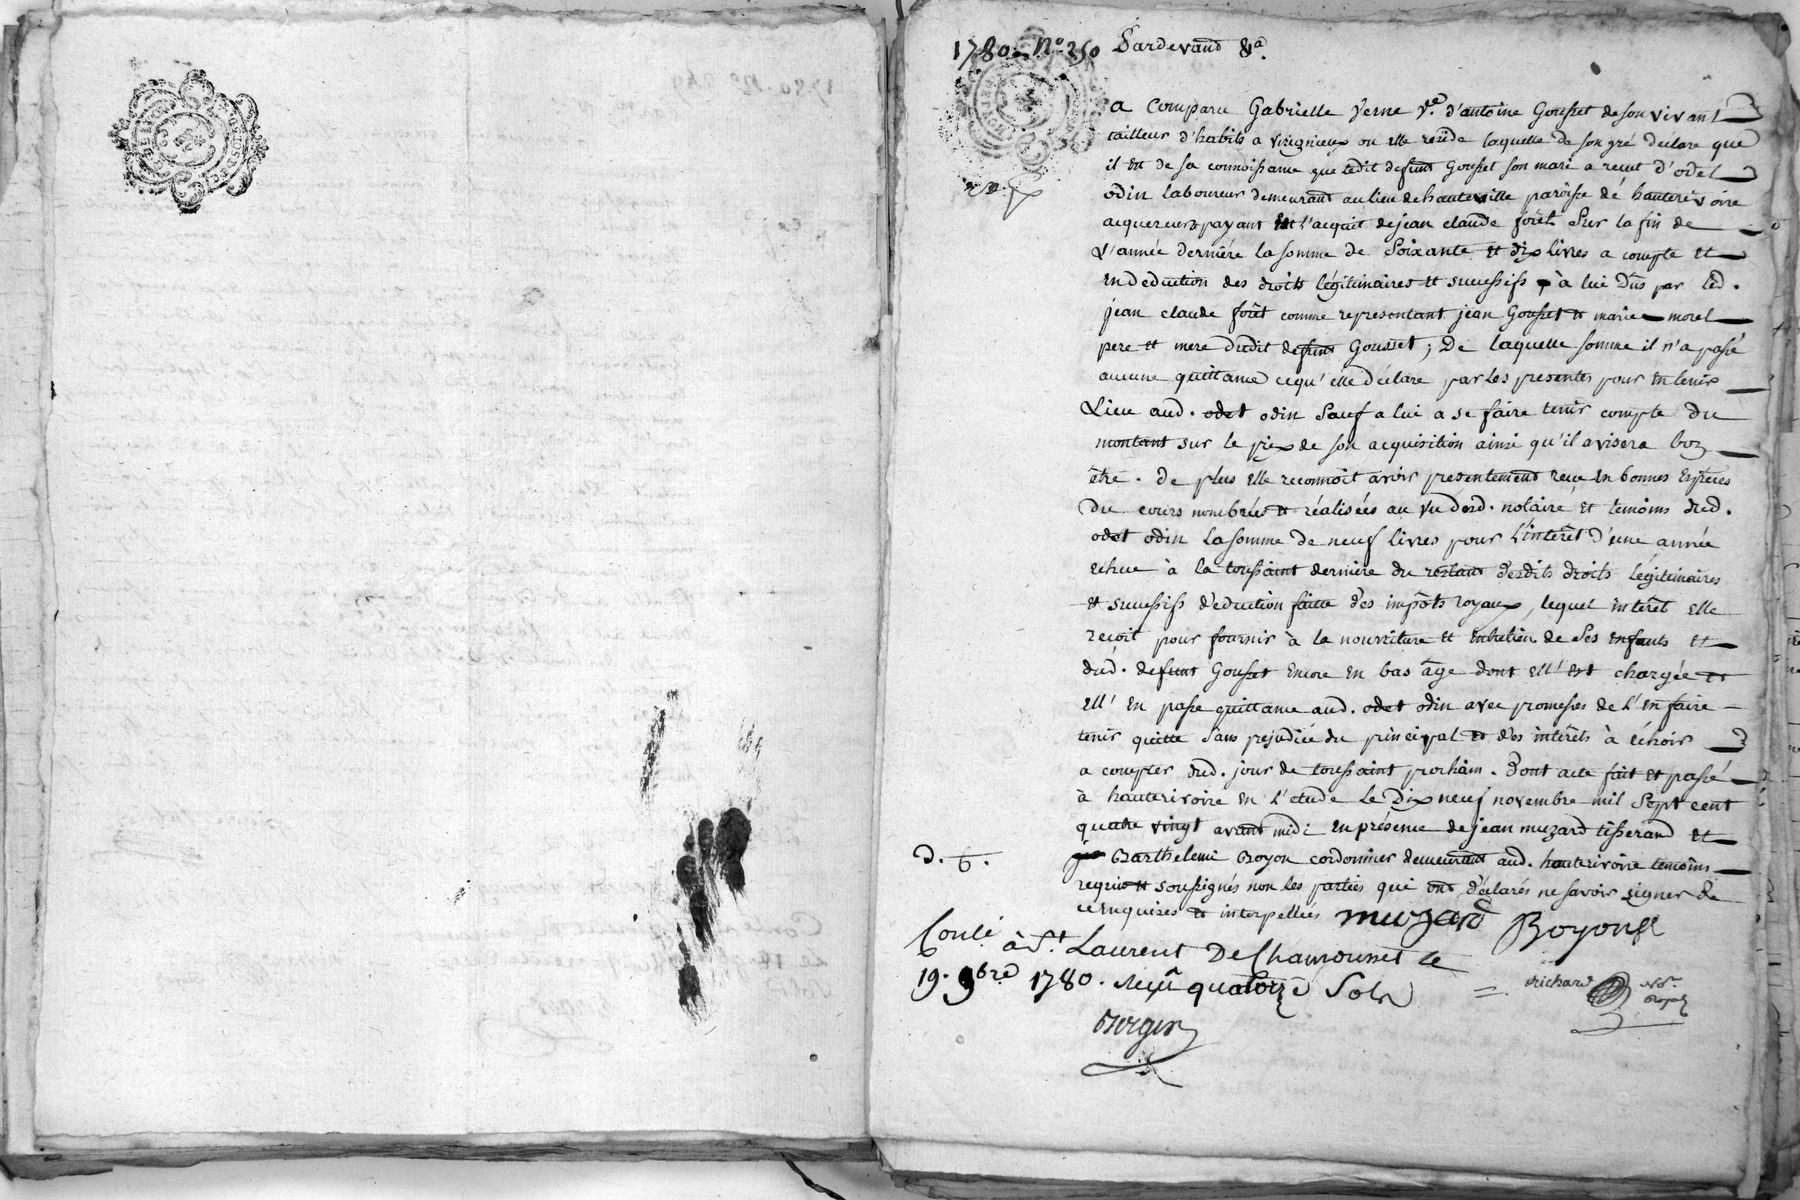 1780. No. 250 Pardevand &a.
a Comparu Gabrielle Verne Ve. d'antoine Gousset de son vivant
tailleur d'habits a virigneux ou elle reside laquelle de son gré déclare que
il Est de sa connoissance que ledit defunt Gousset son mari a recut d'odet
odin laboureur demeurant au lieu de hauteville paroisse dé hauterivoire
acquereur & payant Et l'acquit de jean claude forêt sur la fin de
l'année derniére la somme de Soixante et dix livres a compte Et
En deduction des droits légitimaires et successifs à lui Dûs par led.
jean claude forêt comme representant jean Gousset et marie morel
pere et mere dudit defunt Gousset; De laquelle somme il n'a passé
aucune quittance ce qu'elle déclare par les presentes pour En tenir
Lieu aud. odet odin Sauf a lui a se faire tenir compte du
montant sur le prix de son acquisition ainsi qu'il avisera bon
être. De plus Elle reconnoit avoir presentement recue En bonnes Espèces
du cours nombrées et réalisées au vu desd. notaire Et temoins dud.
odet odin la somme de neuf livres pour L'intérêt d'une année
echue à la toussaint derniére du restant desdits droits légitimaires
et successifs déduction faitte des impôts royaux, lequel intérêt Elle
reçoit pour fournir à la nourriture et Entretien de Ses Enfants Et
dud. defunt Gousset Encore En bas âge dont Ell' Est chargée Et
Ell' En passe quittance aud. odet odin avec promesses de l'En faire
tenir quitte Sans prejudice du principal et des intérêts à échoir
a compter dud. jour de toussaint prochain. Dont acte fait et passé
à hauterivoire En l'etude Le Dix neuf novembre mil Sept cent
quatre vingt avant midi En présence de jean muzard tisserand Et
D. b. Barthelemi Boyon cordonnier demeurant aud. hauterivoire temoins
requis et soussignés non les parties qui ont déclarés ne savoir signer de
ce Enquises et interpellées muzard Boyon
Conlé à St. Laurent De Chamousset le
19. 9bre 1780. Reçu quatorze Sols
Richard Nore. Royal
Berger